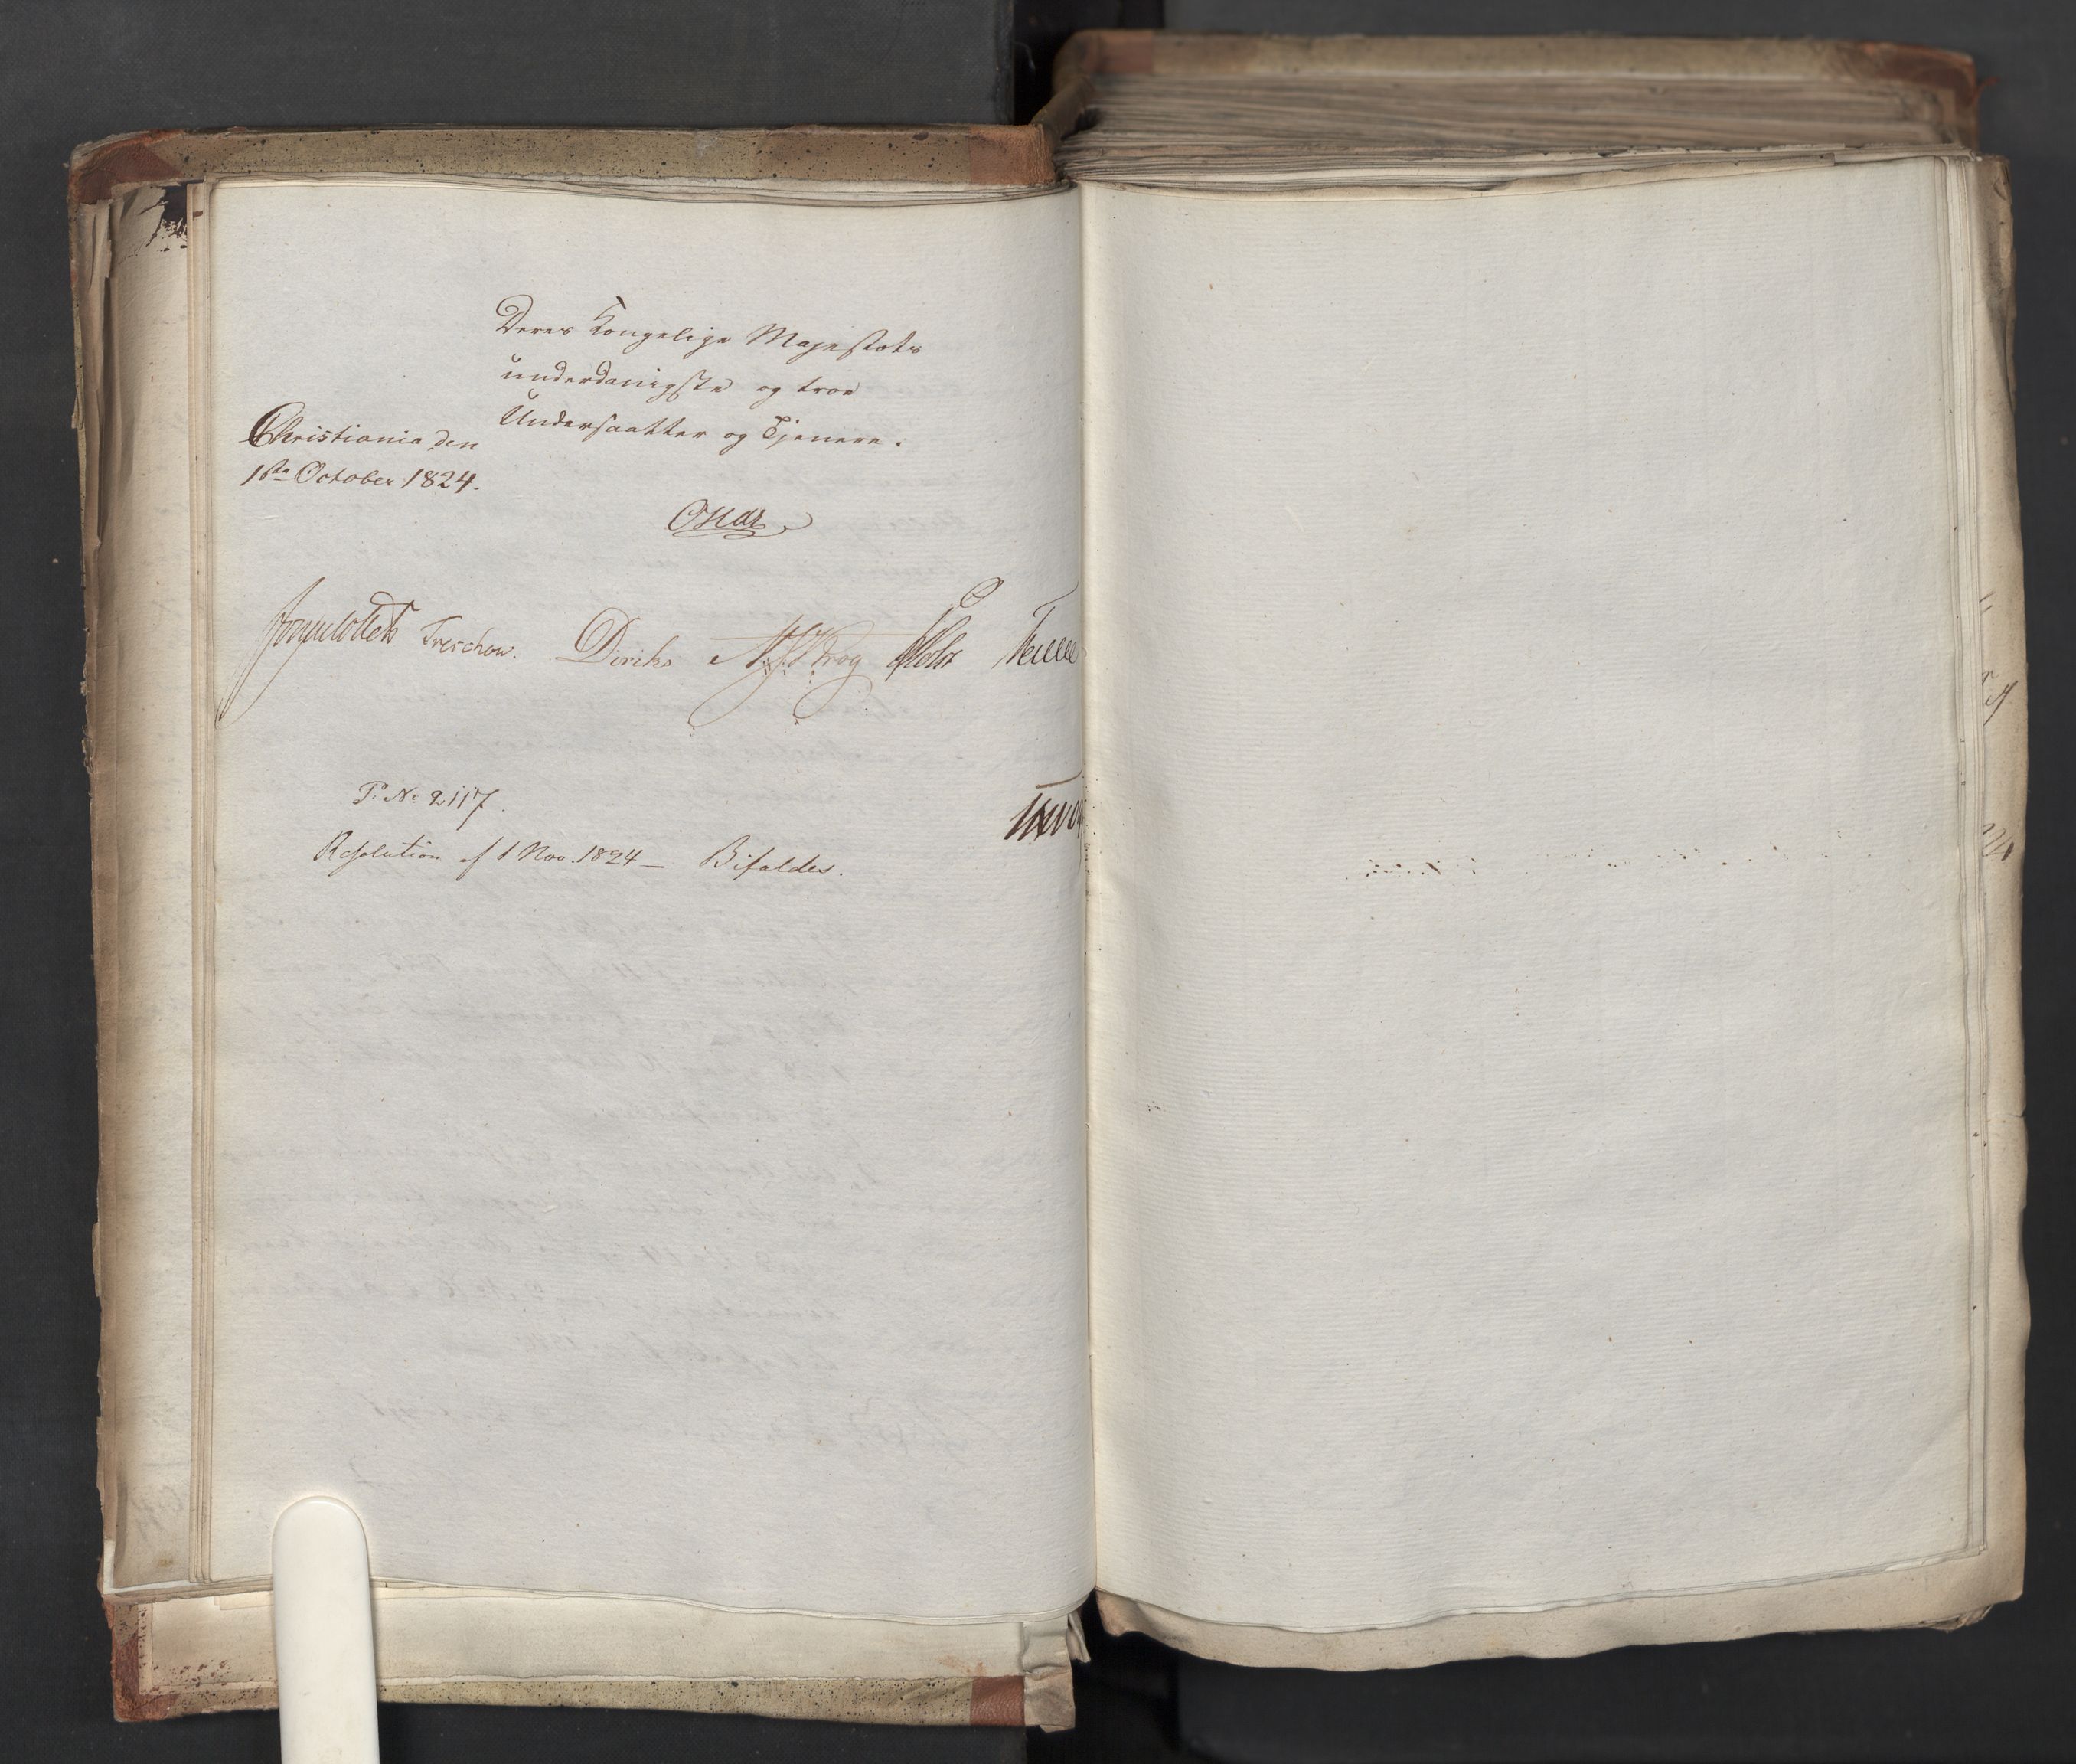 Deres Kongelige Majestæts
underdanigste og troe
Undersaatter og Tjenere.
Christiania den
1ste October 1824.
Oscar
Jonas Collett Treschow. Diriks Krog Holst
P. No 2117.
Resolution af 1 Nov. 1824 — Bifaldes.